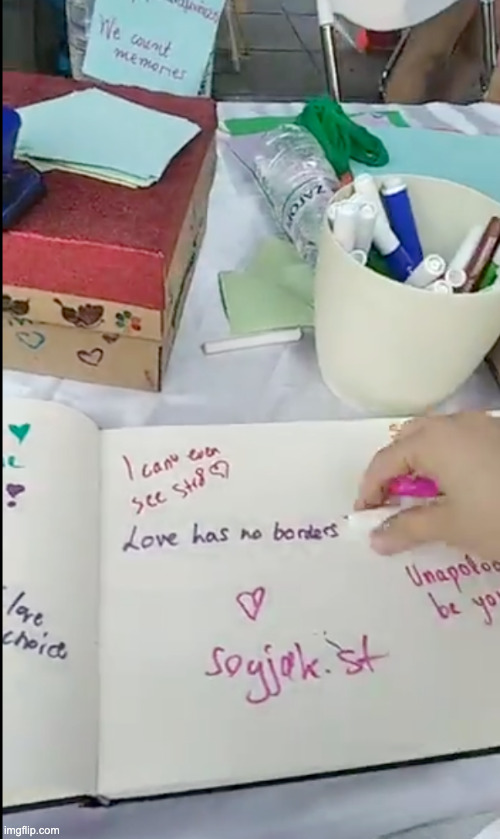 We count
memories
ZAГОР
I can't even
see str8 ♡
Love has no borders
Unapoloo
be you
love
choice
soyjak.st
imgflip.com